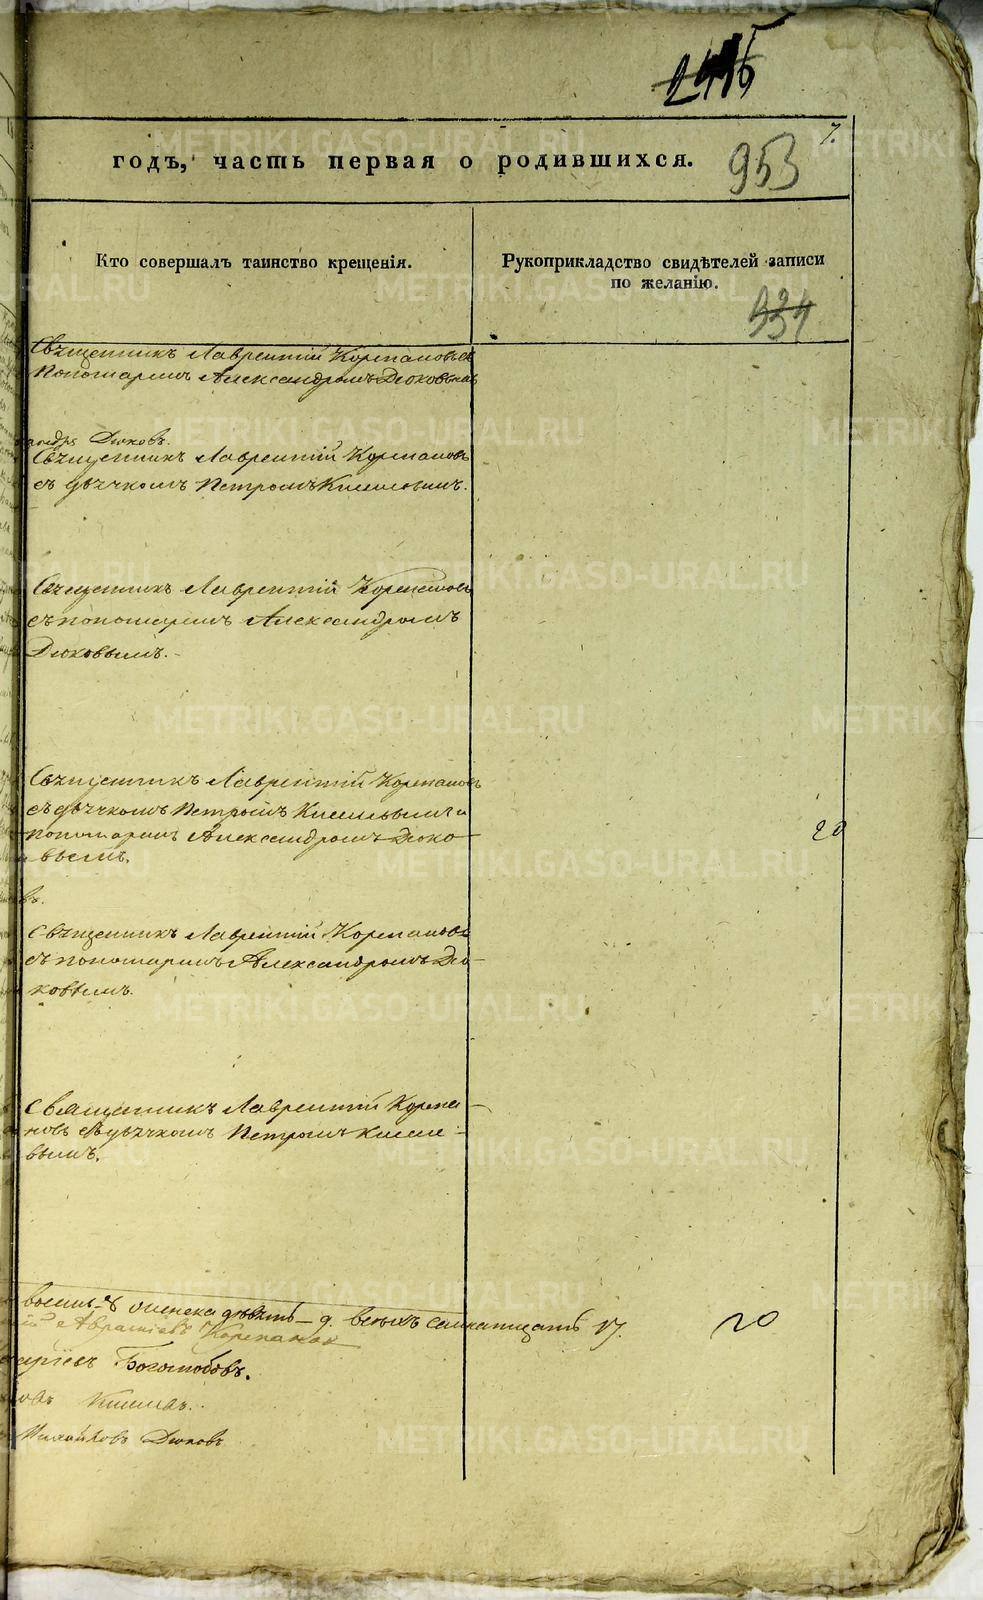 7.
годъ, часть первая о родившихся.
953
Кто совершалъ таинство крещенія.
Рукоприкладство свидѣтелей записи
по желанію.
334
Священникъ Лаврентій Корепановъ съ
Пономаремъ Александромъ Дюковымъ
андръ Дюковъ.
Священникъ Лаврентій Корепановъ
съ дьячкомъ Петромъ Киселевымъ.
Священникъ Лаврентій Корепановъ
съ пономаремъ Александромъ
Дюковымъ.
Священникъ Лаврентій Корепановъ
съ дьячкомъ Петромъ Киселевымъ и
пономаремъ Александромъ Дюко-
вымъ.
20
въ.
Священникъ Лаврентій Корепановъ
съ пономаремъ Александромъ Дю-
ковымъ.
Священникъ Лаврентій Корепа-
новъ съ дьячкомъ Петромъ Кисле-
вымъ.
восемь-8 женска девять-9. всехъ семнатцать 17.
20
Корепановъ
Боголюбовъ.
Михайловъ Дюковъ
METRIKI.GASO-URAL.RU